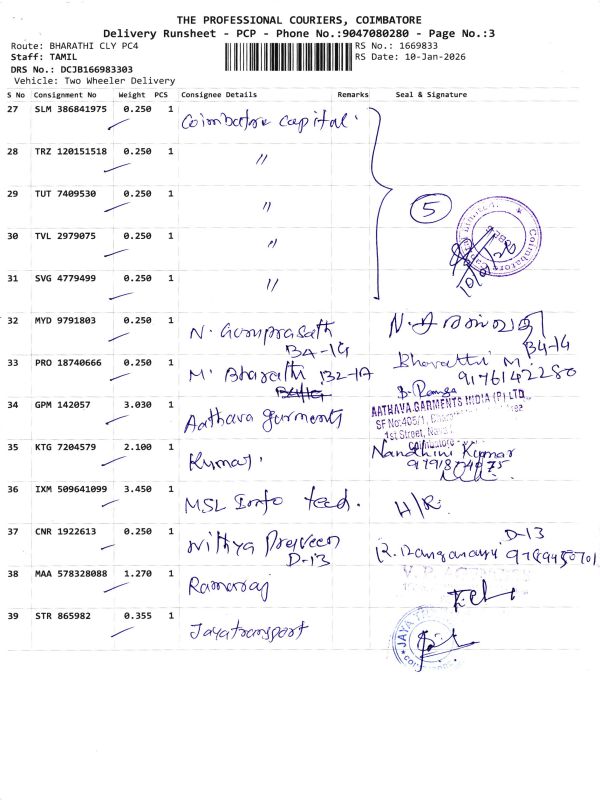 THE PROFESSIONAL COURIERS, COIMBATORE
Delivery Runsheet - PCP - Phone No.:9047080280 - Page No.:3
Route: BHARATHI CLY PC4
RS No.: 1669833
Staff: TAMIL
RS Date: 10-Jan-2026
DRS No.: DCJB166983303
Vehicle: Two Wheeler Delivery
S No Consignment No Weight PCS Consignee Details Remarks Seal & Signature
27 SLM 386841975 0.250 1 Coimbatore capital.
28 TRZ 120151518 0.250 1 "
29 TUT 7409530 0.250 1 " 5
30 TVL 2979075 0.250 1 "
31 SVG 4779499 0.250 1 "
32 MYD 9791803 0.250 1 N. Guruprasath
B4-14 B4-14
33 PRO 18740666 0.250 1 M. Bharathi B2-1A Bharathi M.
9176142280
34 GPM 142057 3.030 1 Aathava garments
AATHAVA GARMENTS INDIA (P) LTD.,
SF No:405/1,
1st Street,
Coimbatore
35 KTG 7204579 2.100 1 Kumar. Nandhini Kumar
36 IXM 509641099 3.450 1 MSL Info tech. H/R.
37 CNR 1922613 0.250 1 Nithya Praveen
D-13 D-13
38 MAA 578328088 1.270 1 Ramaraj
39 STR 865982 0.355 1 Jayatransport
JAYA